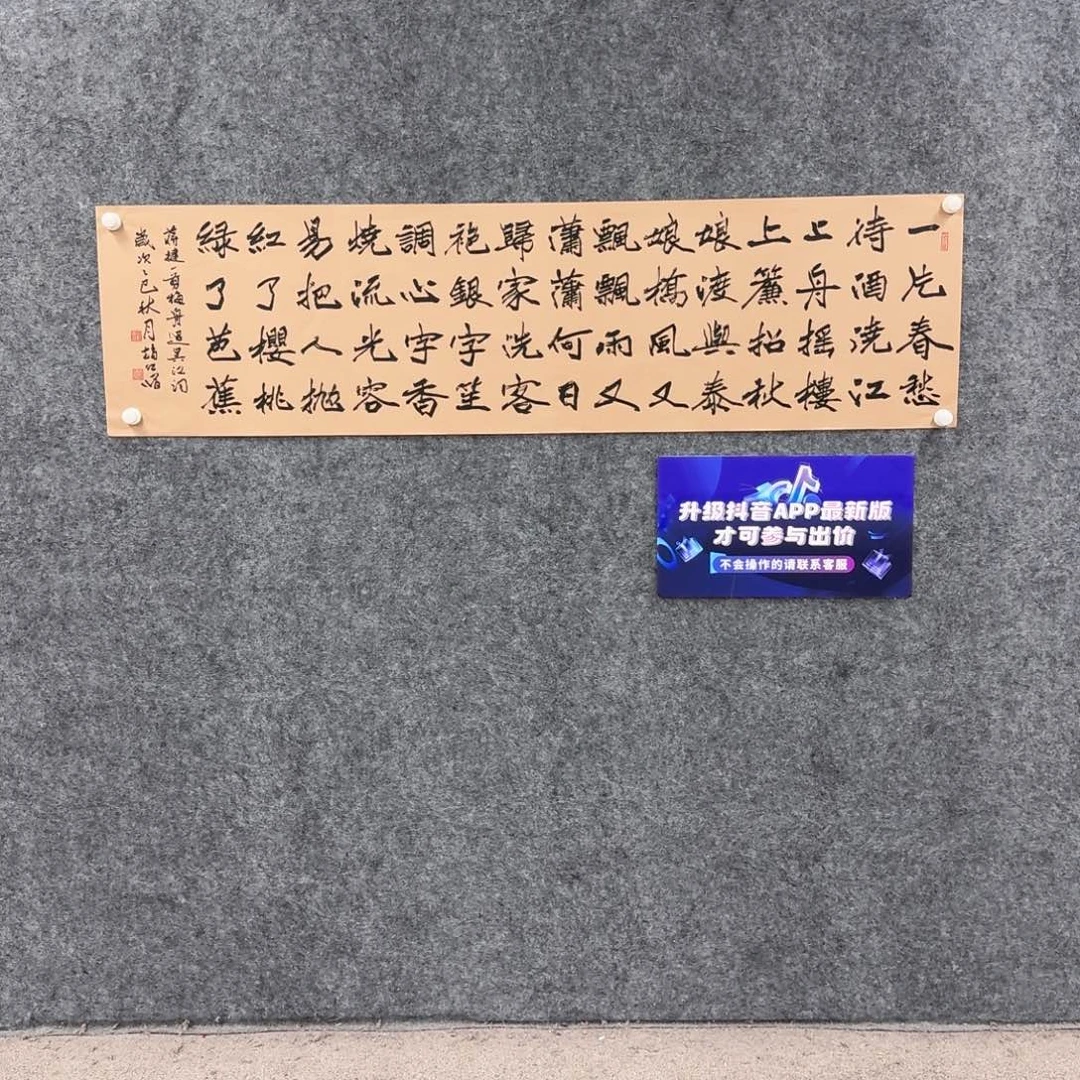 一片春愁
待酒澆江
上舟摇樓
上簾招秋
娘渡與泰
娘橋風又
飄飄雨又
瀟瀟何日
歸家洗客
袍銀字笙
調心字香
燒流光容
易把人抛
紅了櫻桃
緑了芭蕉
蔣捷一剪梅舟過吴江词
歲次乙巳秋月
升级抖音APP最新版
才可参与出价
不会操作的请联系客服